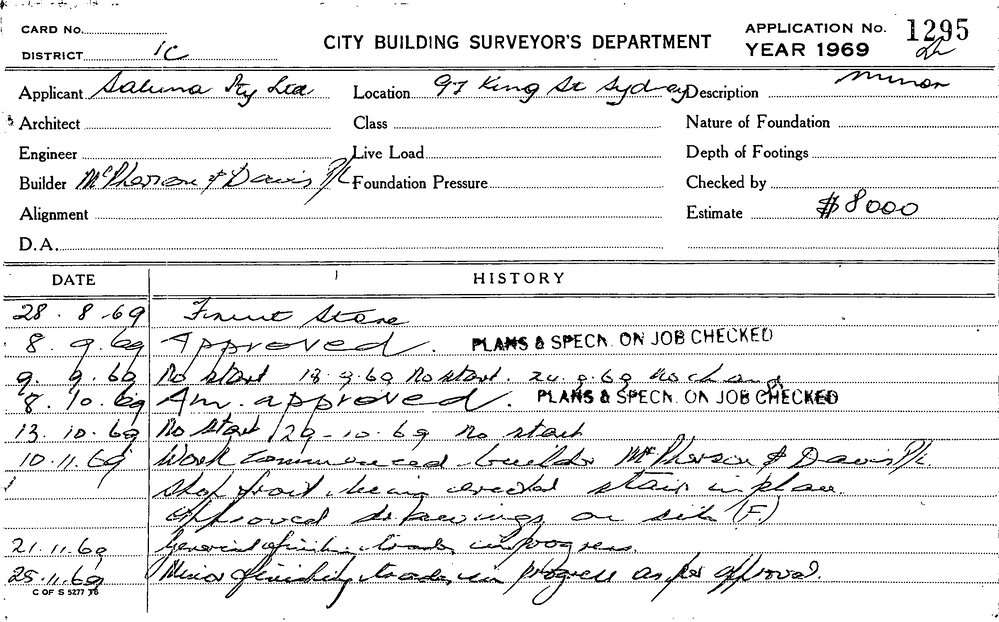 CARD No.
DISTRICT 1C
CITY BUILDING SURVEYOR'S DEPARTMENT
APPLICATION No. 1295
YEAR 1969
Applicant Pty Ltd
Location 97 King St Sydney
Description minor
Architect
Class
Nature of Foundation
Engineer
Live Load
Depth of Footings
Builder McPherson & Davis P/L
Foundation Pressure
Checked by
Alignment
Estimate $8000
D.A.
DATE HISTORY
28 . 8 . 69
8 . 9 . 69 Approved . PLANS & SPECN. ON JOB CHECKED
9 . 9 . 69 No start 18 . 9 . 69 No start . 24 . 9 . 69 No change
8 . 10 . 69 Am. approved . PLANS & SPECN. ON JOB CHECKED
13 . 10 . 69 No start 29 - 10 . 69 No start
10 . 11 . 69 Work commenced builder McPherson & Davis P/L.
Shop front being erected stair in place.
approved drawings on site (F.)
21 . 11 . 69 General finishing trades in progress.
25 . 11 . 69 Minor finishing trades in progress as per approval.
C OF S 5277 76